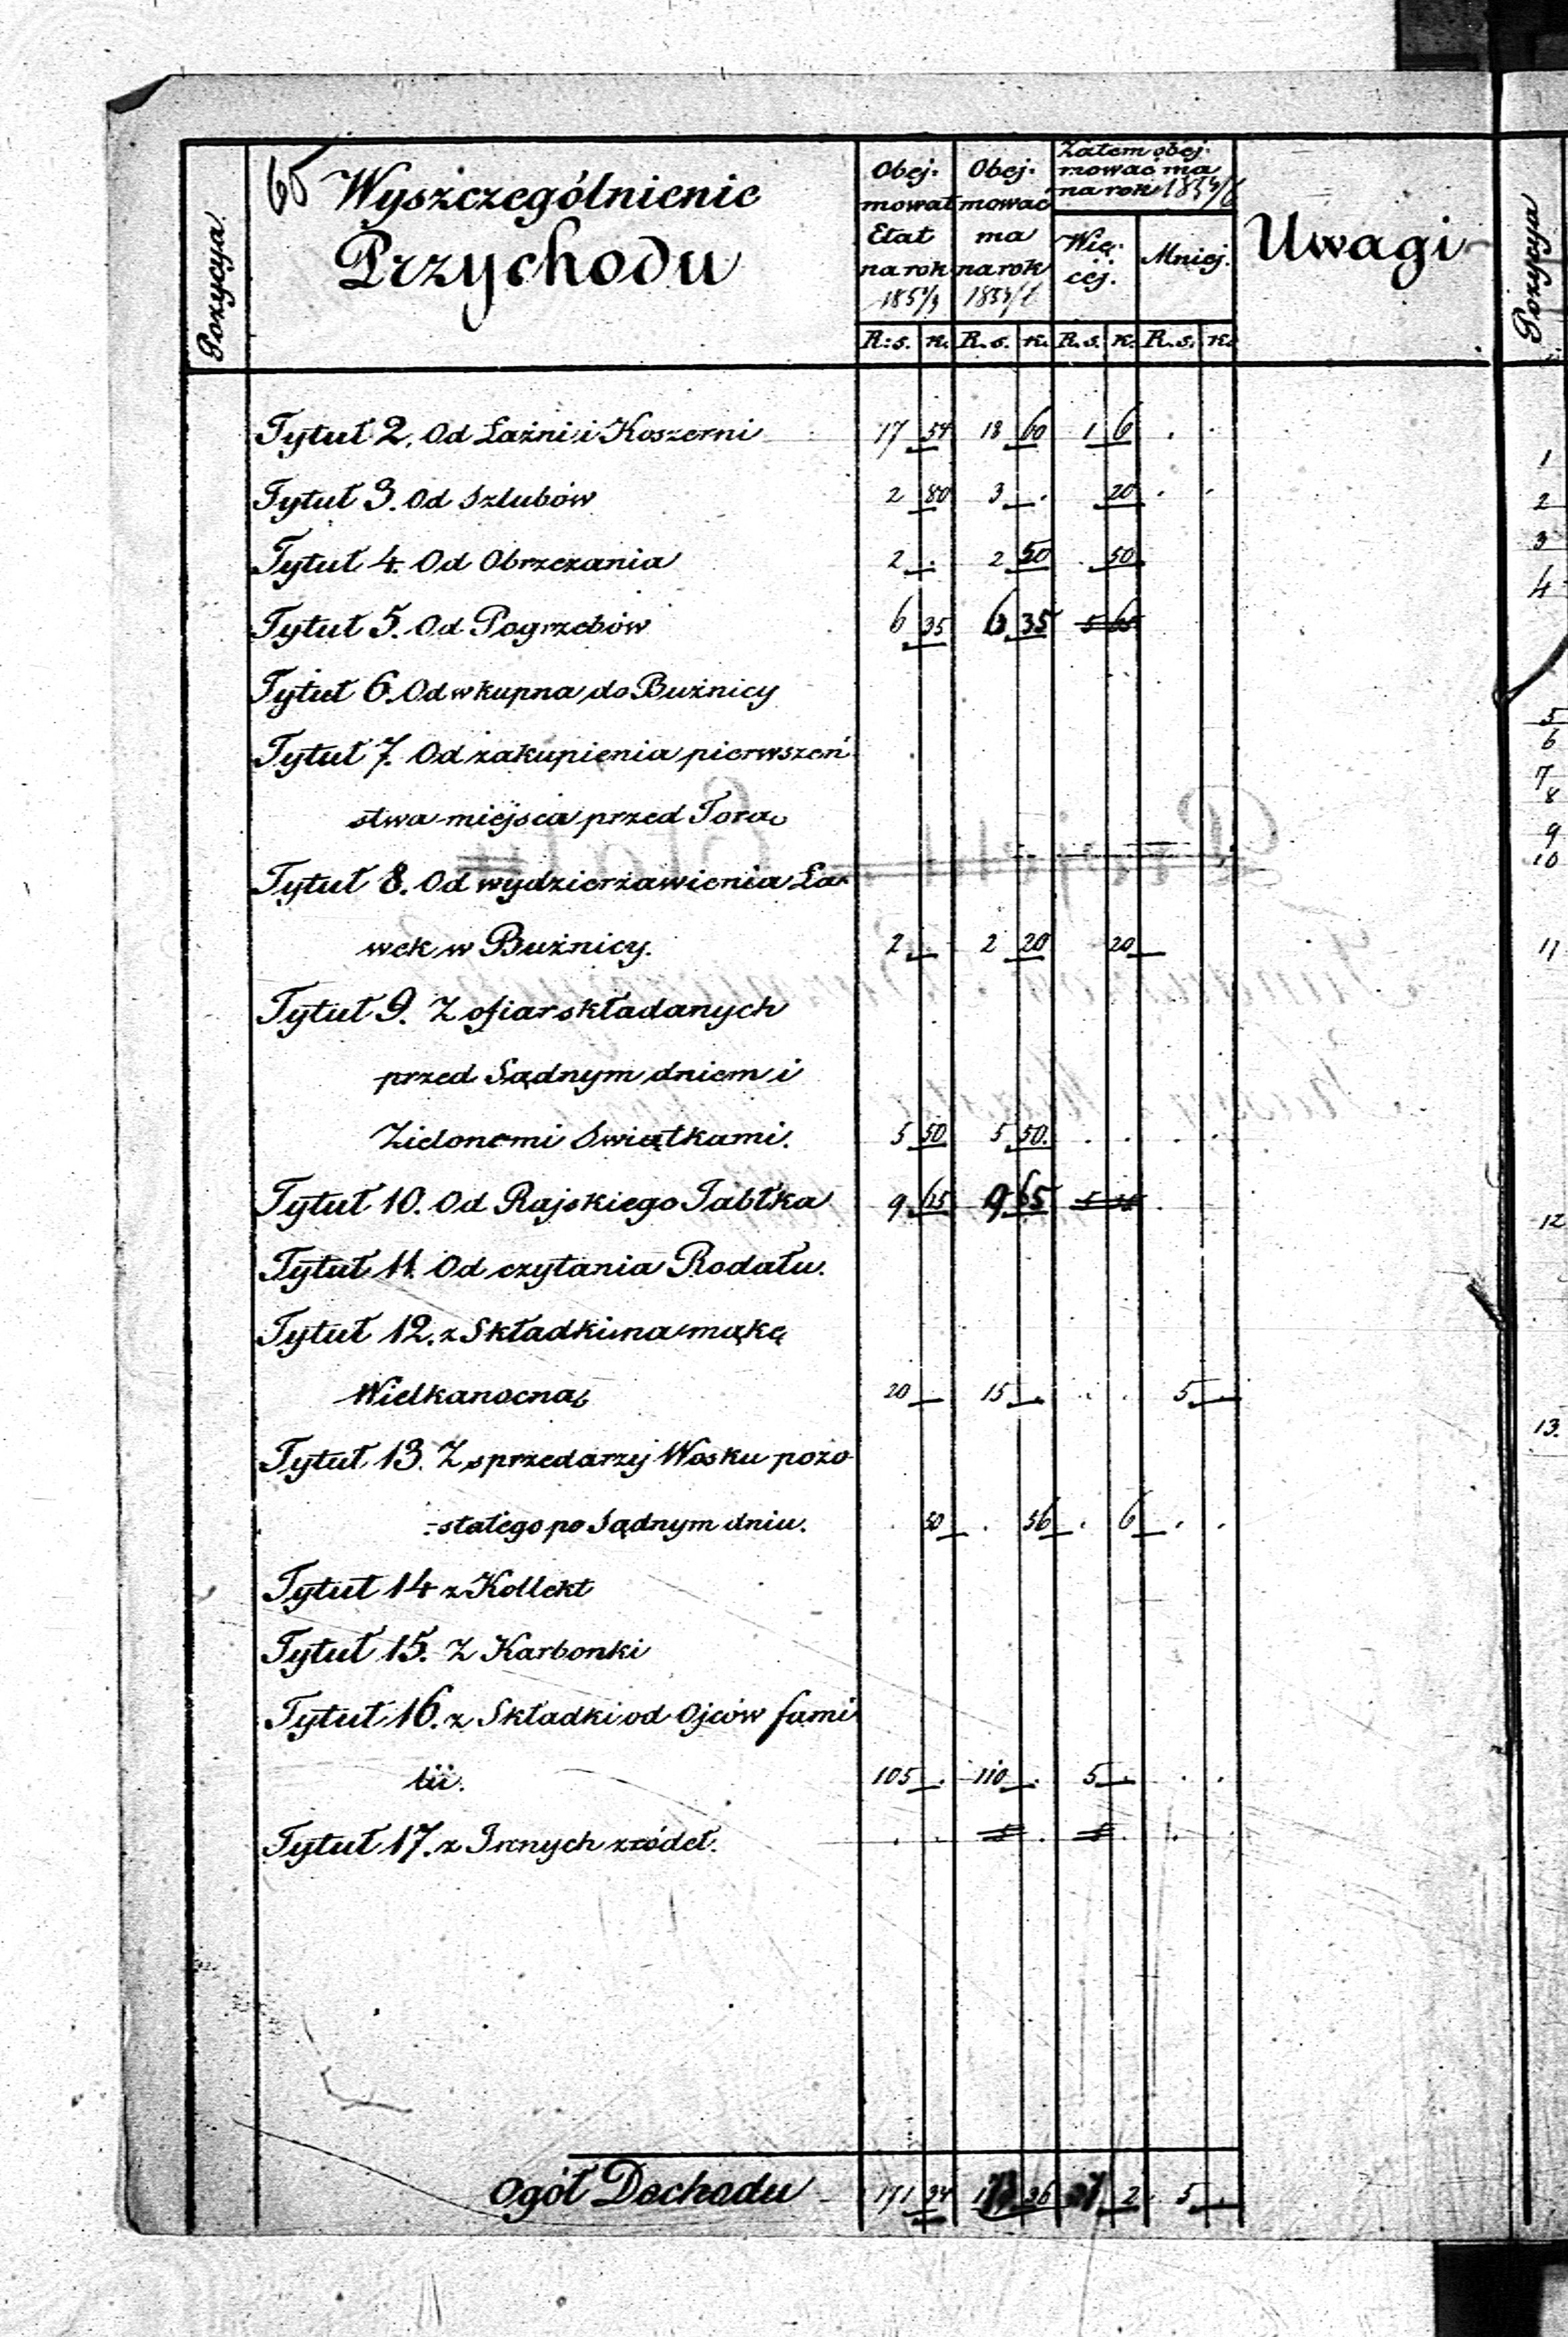 65
Pozycya
Wyszczególnienie
Przychodu
Obej-
mował
Etat
na rok
Obej-
mować
ma
na rok
Zatem obej-
mować ma
na rok
Wię-
cej.
Mniej.
Uwagi
Pozycya
R: s. k. R. s. k. R. s. k. R. s. k.
Tytuł 2. Od Łaźni i Koszerni 17 54 18 60 1 6
Tytuł 3. Od Szlubów 2 80 3 . 20
Tytuł 4. Od Obrzezania 2 . 2 50 . 50
Tytuł 5. Od Pogrzebów 6 35 6 35
Tytuł 6. Od wkupna do Bużnicy
Tytuł 7. Od zakupienia pierwszeń
stwa miejsca przed Torą
Tytuł 8. Od wydzierżawienia Ła-
wek w Bużnicy. 2 . 2 20 20
Tytuł 9. Z ofiar składanych
przed Sądnym dniem i
Zielonemi Swiątkami. 5 50. 5 50.
Tytuł 10. Od Rajskiego Jabłka 9 65 9 65
Tytuł 11. Od czytania Rodału.
Tytuł 12. z Składki na mąkę
Wielkanocną 20 15 5
Tytuł 13. Z sprzedarzy Wosku pozo
-stałego po Sądnym dniu. 50 56 6
Tytuł 14 z Kollekt
Tytuł 15. Z Karbonki
Tytuł 16. z Składki od Ojców fami
lii. 105 . 110 . 5 .
Tytuł 17. z Innych zródeł.
Ogół Dochodu 171 34 36 2 5
1
2
3
4
5
6
7
8
9
10
11
12
13.